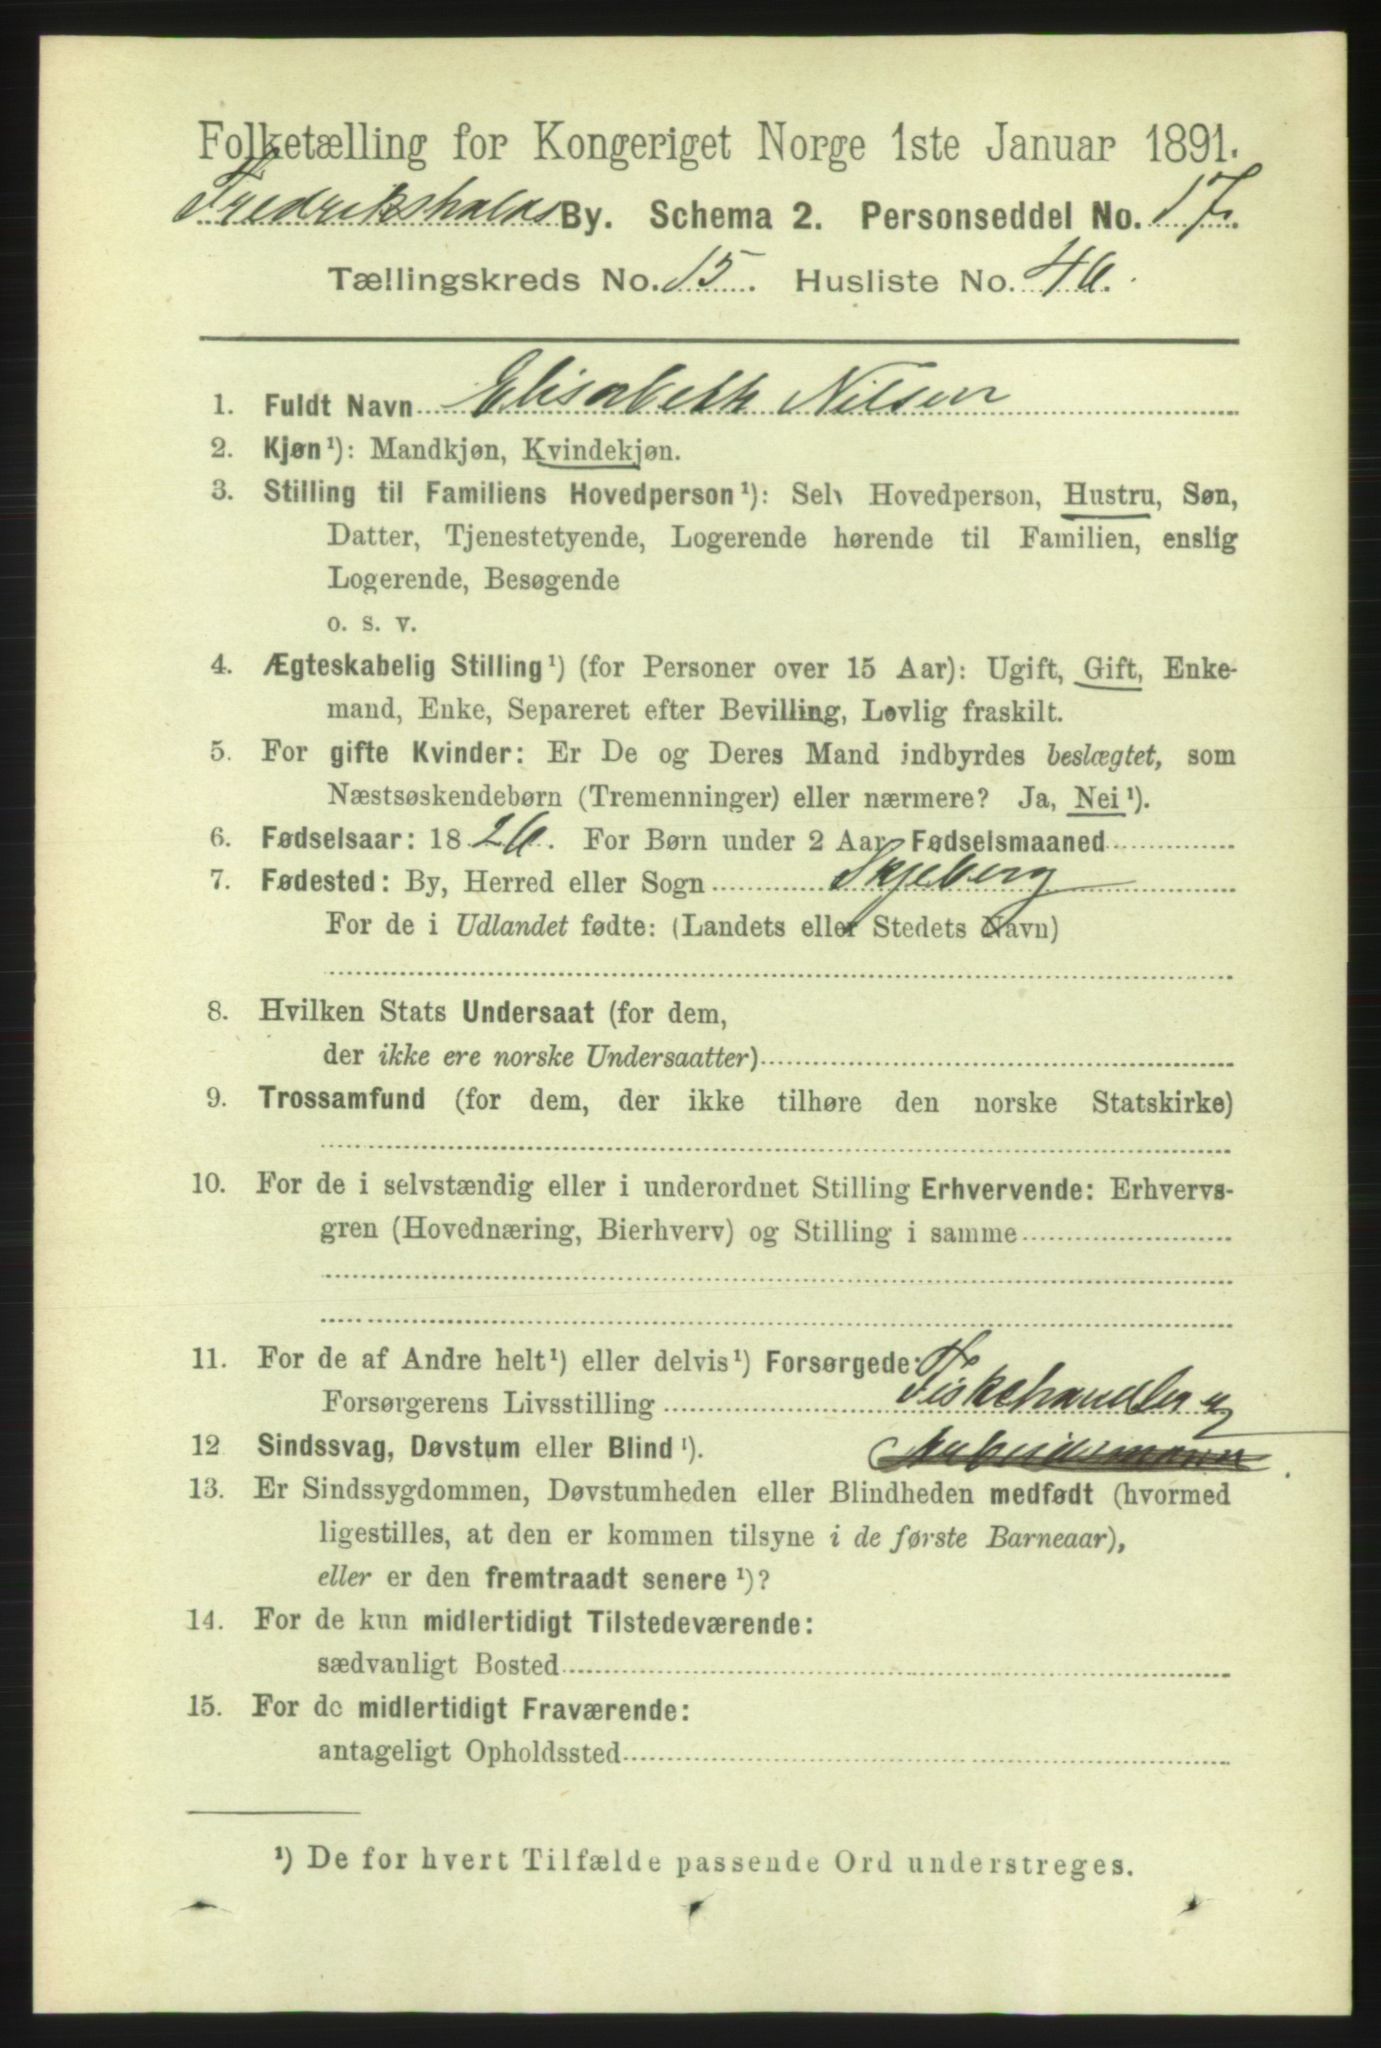 Folketælling for Kongeriget Norge 1ste Januar 1891.
Fredrikshalds By. Schema 2. Personseddel No. 17.
Tællingskreds No. 15. Husliste No. 46.
1. Fuldt Navn Elisabeth Nilsen
2. Kjøn¹): Mandkjøn, Kvindekjøn.
3. Stilling til Familiens Hovedperson¹): Selv Hovedperson, Hustru, Søn,
Datter, Tjenestetyende, Logerende hørende til Familien, enslig
Logerende, Besøgende
o. s. v.
4. Ægteskabelig Stilling¹) (for Personer over 15 Aar): Ugift, Gift, Enke-
mand, Enke, Separeret efter Bevilling, Lovlig fraskilt.
5. For gifte Kvinder: Er De og Deres Mand indbyrdes beslægtet, som
Næstsøskendebørn (Tremenninger) eller nærmere? Ja, Nei¹).
6. Fødselsaar: 1826. For Børn under 2 Aar Fødselsmaaned
7. Fødested: By, Herred eller Sogn Skjeberg
For de i Udlandet fødte: (Landets eller Stedets Navn)
8. Hvilken Stats Undersaat (for dem,
der ikke ere norske Undersaatter)
9. Trossamfund (for dem, der ikke tilhøre den norske Statskirke)
10. For de i selvstændig eller i underordnet Stilling Erhvervende: Erhvervs-
gren (Hovednæring, Bierhverv) og Stilling i samme
11. For de af Andre helt¹) eller delvis¹) Forsørgede:
Forsørgerens Livsstilling Fiskehandler
12 Sindssvag, Døvstum eller Blind¹). Arbeidsmann
13. Er Sindssygdommen, Døvstumheden eller Blindheden medfødt (hvormed
ligestilles, at den er kommen tilsyne i de første Barneaar),
eller er den fremtraadt senere¹)?
14. For de kun midlertidigt Tilstedeværende:
sædvanligt Bosted
15. For de midlertidigt Fraværende:
antageligt Opholdssted
¹) De for hvert Tilfælde passende Ord understreges.